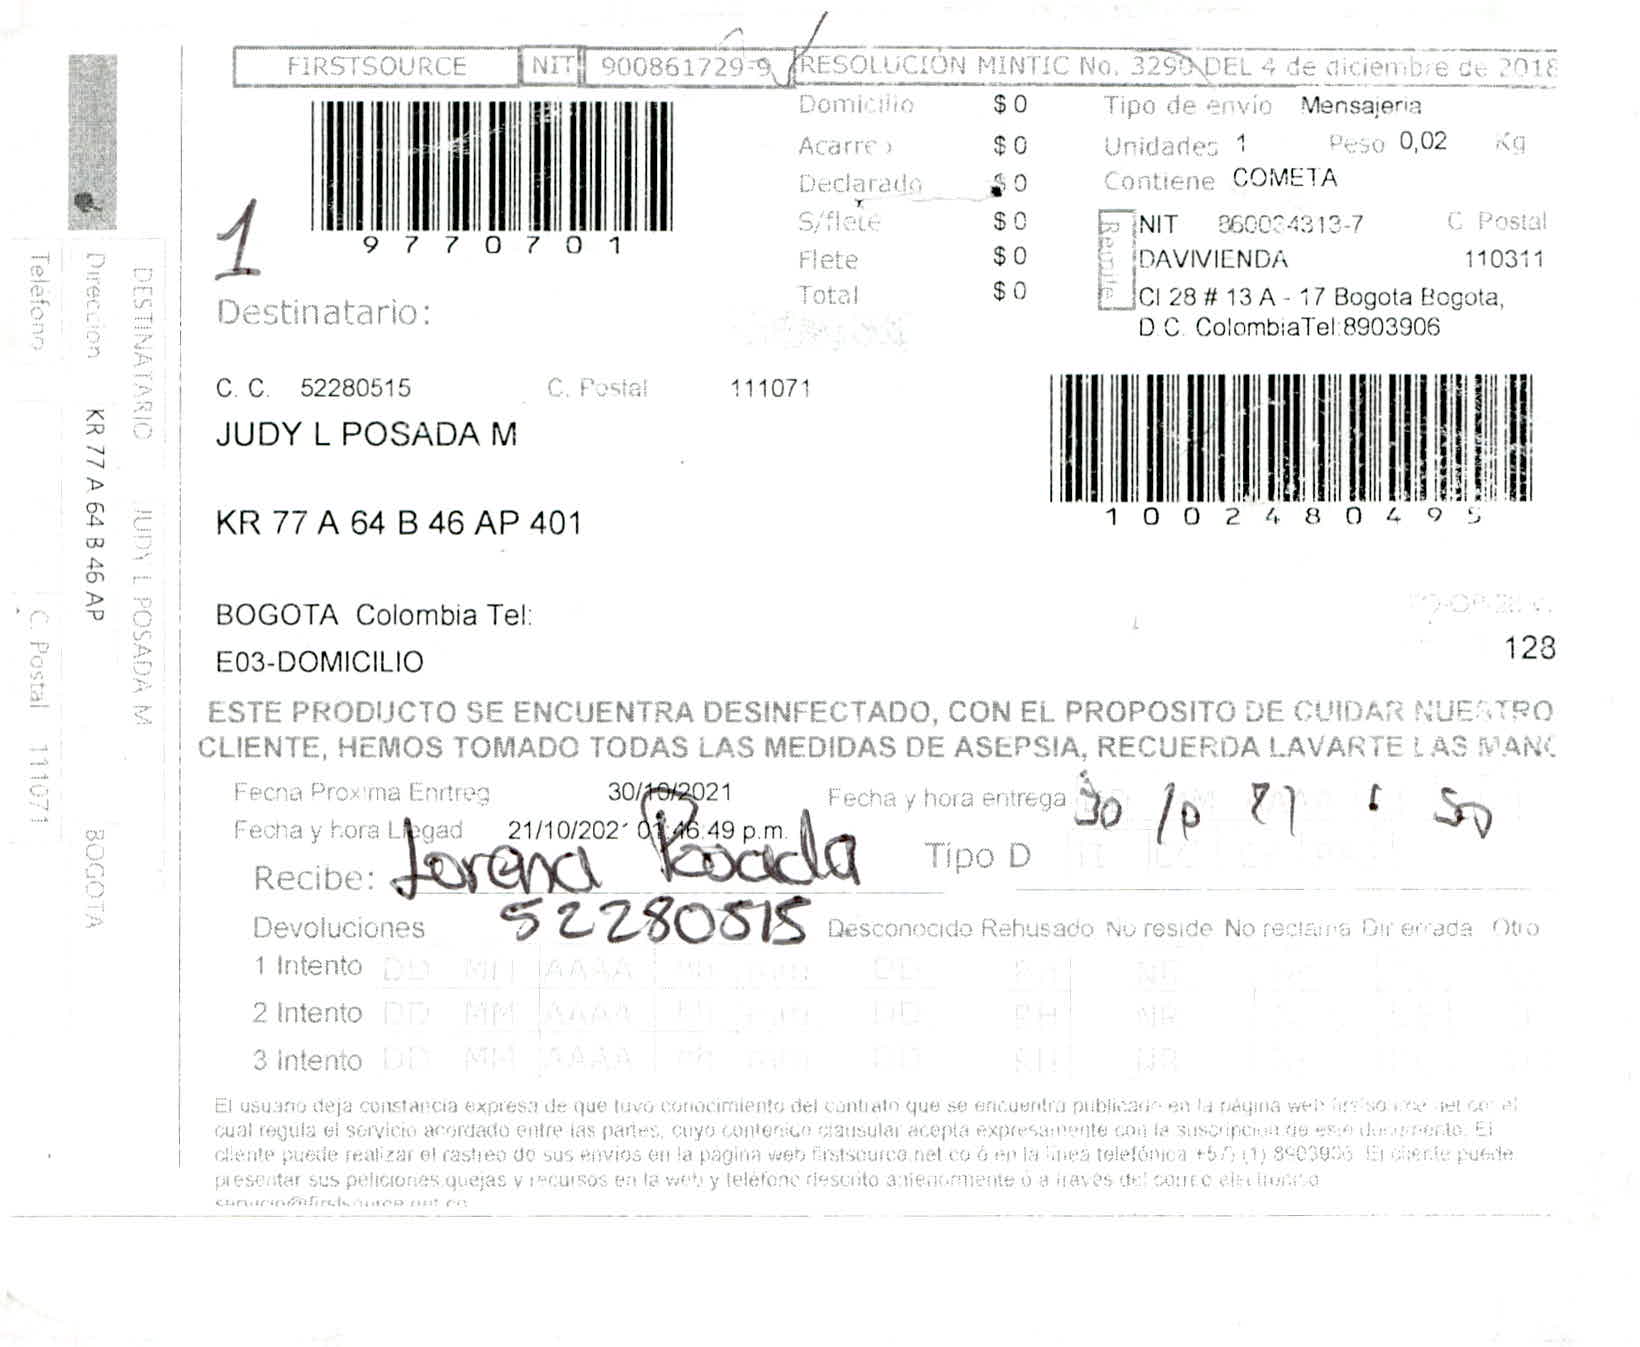 FIRSTSOURCE NIT 900861729-9 RESOLUCIÓN MINTIC No. 3290 DEL 4 de diciembre de 2018
9770701
1
Domicilio $ 0
Acarreo $ 0
Declarado $ 0
S/flete $ 0
Flete $ 0
Total $ 0
Tipo de envío Mensajeria
Unidades 1 Peso 0,02 Kg
Contiene COMETA
Remite
NIT 860034313-7 C Postal
DAVIVIENDA 110311
Cl 28 # 13 A - 17 Bogota Bogota,
D.C. ColombiaTel:8903906
1002480495
Destinatario:
C. C. 52280515 C. Postal 111071
JUDY L POSADA M
KR 77 A 64 B 46 AP 401
BOGOTA Colombia Tel:
E03-DOMICILIO
128
ESTE PRODUCTO SE ENCUENTRA DESINFECTADO, CON EL PROPOSITO DE CUIDAR NUESTRO
CLIENTE, HEMOS TOMADO TODAS LAS MEDIDAS DE ASEPSIA, RECUERDA LAVARTE LAS MANO
Fecha Proxima Enrtreg 30/10/2021 Fecha y hora entrega 30 10 21
Fecha y hora Llegad 21/10/2021 01:46:49 p.m.
Tipo D
Recibe: Lorena Posada
52280515
Devoluciones Desconocido Rehusado No reside No reclama Dir errada Otro
1 Intento DD MM AAAA HH mm DD RH NR
2 Intento DD MM AAAA HH mm DD RH NR
3 Intento DD MM AAAA HH mm DD RH NR
El usuario deja constancia expresa de que tuvo conocimiento del contrato que se encuentra publicado en la página web firstsource.net.co el
cual regula el servicio acordado entre las partes, cuyo contenido clausular acepta expresamente con la suscripción de este documento. El
cliente puede realizar el rastreo de sus envios en la pagina web firstsource.net.co ó en la línea telefónica +57 (1) 8903906. El cliente puede
presentar sus peticiones,quejas y recursos en la web y teléfono descrito anteriormente o a través del correo electronico
servicio@firstsource.net.co
DESTINATARIO JUDY L POSADA M
Direccion KR 77 A 64 B 46 AP BOGOTA
Teléfono C. Postal 111071